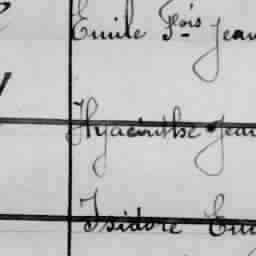 Emile Fois Jean
Hyacinthe Jean
Isidore Eug